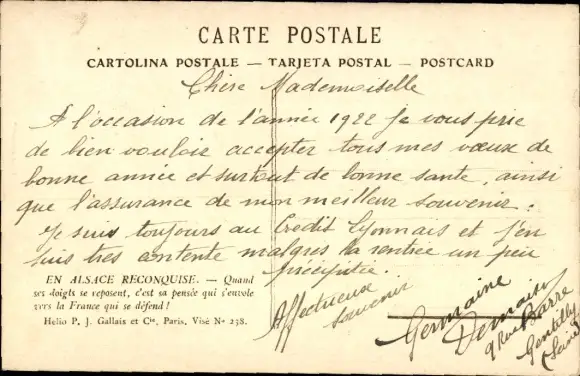 CARTE POSTALE
CARTOLINA POSTALE — TARJETA POSTAL — POSTCARD
Chère Mademoiselle
A l'occasion de l'année 1922 je vous prie
de bien vouloir accepter tous mes vœux de
bonne année et surtout de bonne santé, ainsi
que l'assurance de mon meilleur souvenir.
Je suis toujours au Crédit Lyonnais et j'en
suis très contente malgrés ma rentrée un peu
précipitée.
EN ALSACE RECONQUISE. — Quand
ses doigts se reposent, c'est sa pensée qui s'envole
vers la France qui se défend !
Helio P. J. Gallais et Cie, Paris. Visé No 238.
Affectueux
souvenir
Germaine
9 Rue Barre
Gentilly
(Seine)